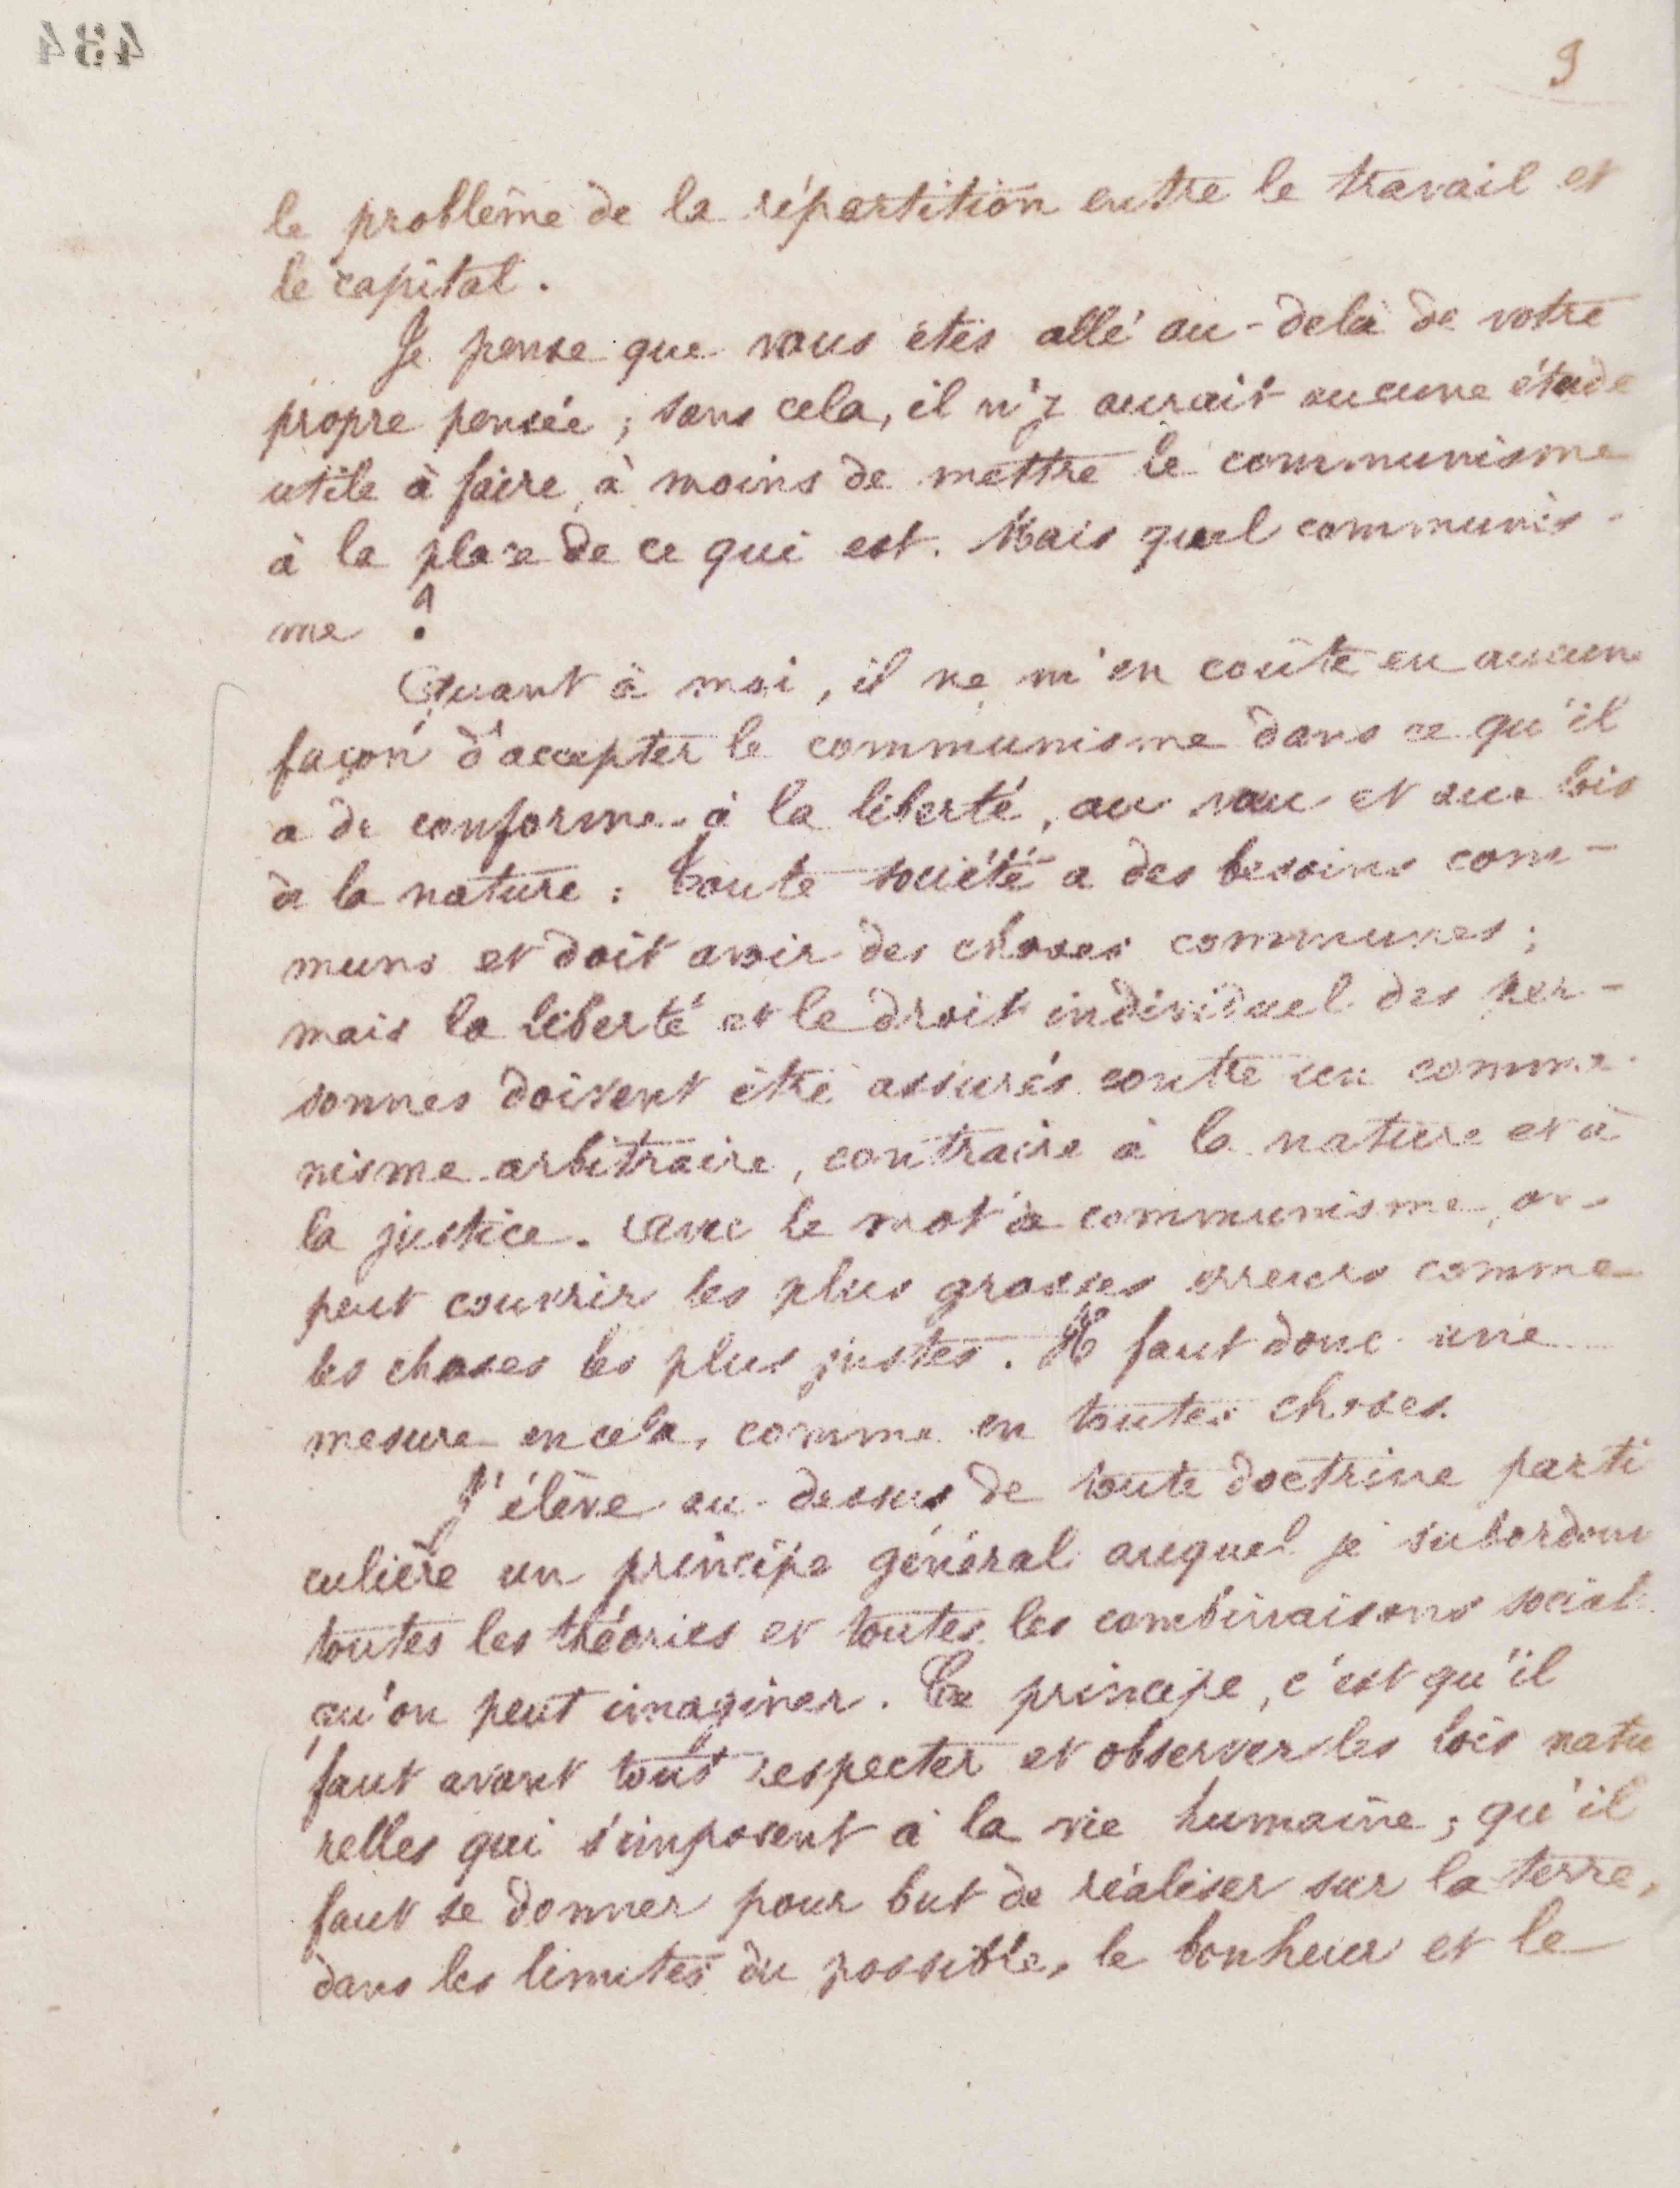 484
9
le problême de la répartition entre le travail et
le capital.
Je pense que vous êtes allé au-delà de votre
propre pensée ; sans cela, il n'y aurait aucune étude
utile à faire, à moins de mettre le communisme
à la place de ce qui est. Mais quel communis-
me ?
Quant à moi, il ne m'en coûte en aucune
façon d'accepter le communisme dans ce qu'il
a de conforme à la liberté, au vrai et aux lois
de la nature : Toute société a des besoins com-
muns et doit avoir des choses communes ;
mais la liberté et le droit individuel des per-
sonnes doivent être assurés contre un commu-
nisme arbitraire, contraire à la nature et à
la justice. Avec le mot de communisme, on
peut couvrir les plus grosses erreurs comme
les choses les plus justes. Il faut donc une
mesure en cela, comme en toutes choses.
J'élève au-dessus de toute doctrine parti
culière un principe général auquel je subordonne
toutes les théories et toutes les combinaisons social
qu'on peut imaginer. Ce principe, c'est qu'il
faut avant tout respecter et observer les lois natu
relles qui s'imposent à la vie humaine ; qu'il
faut se donner pour but de réaliser sur la terre,
dans les limites du possible, le bonheur et le